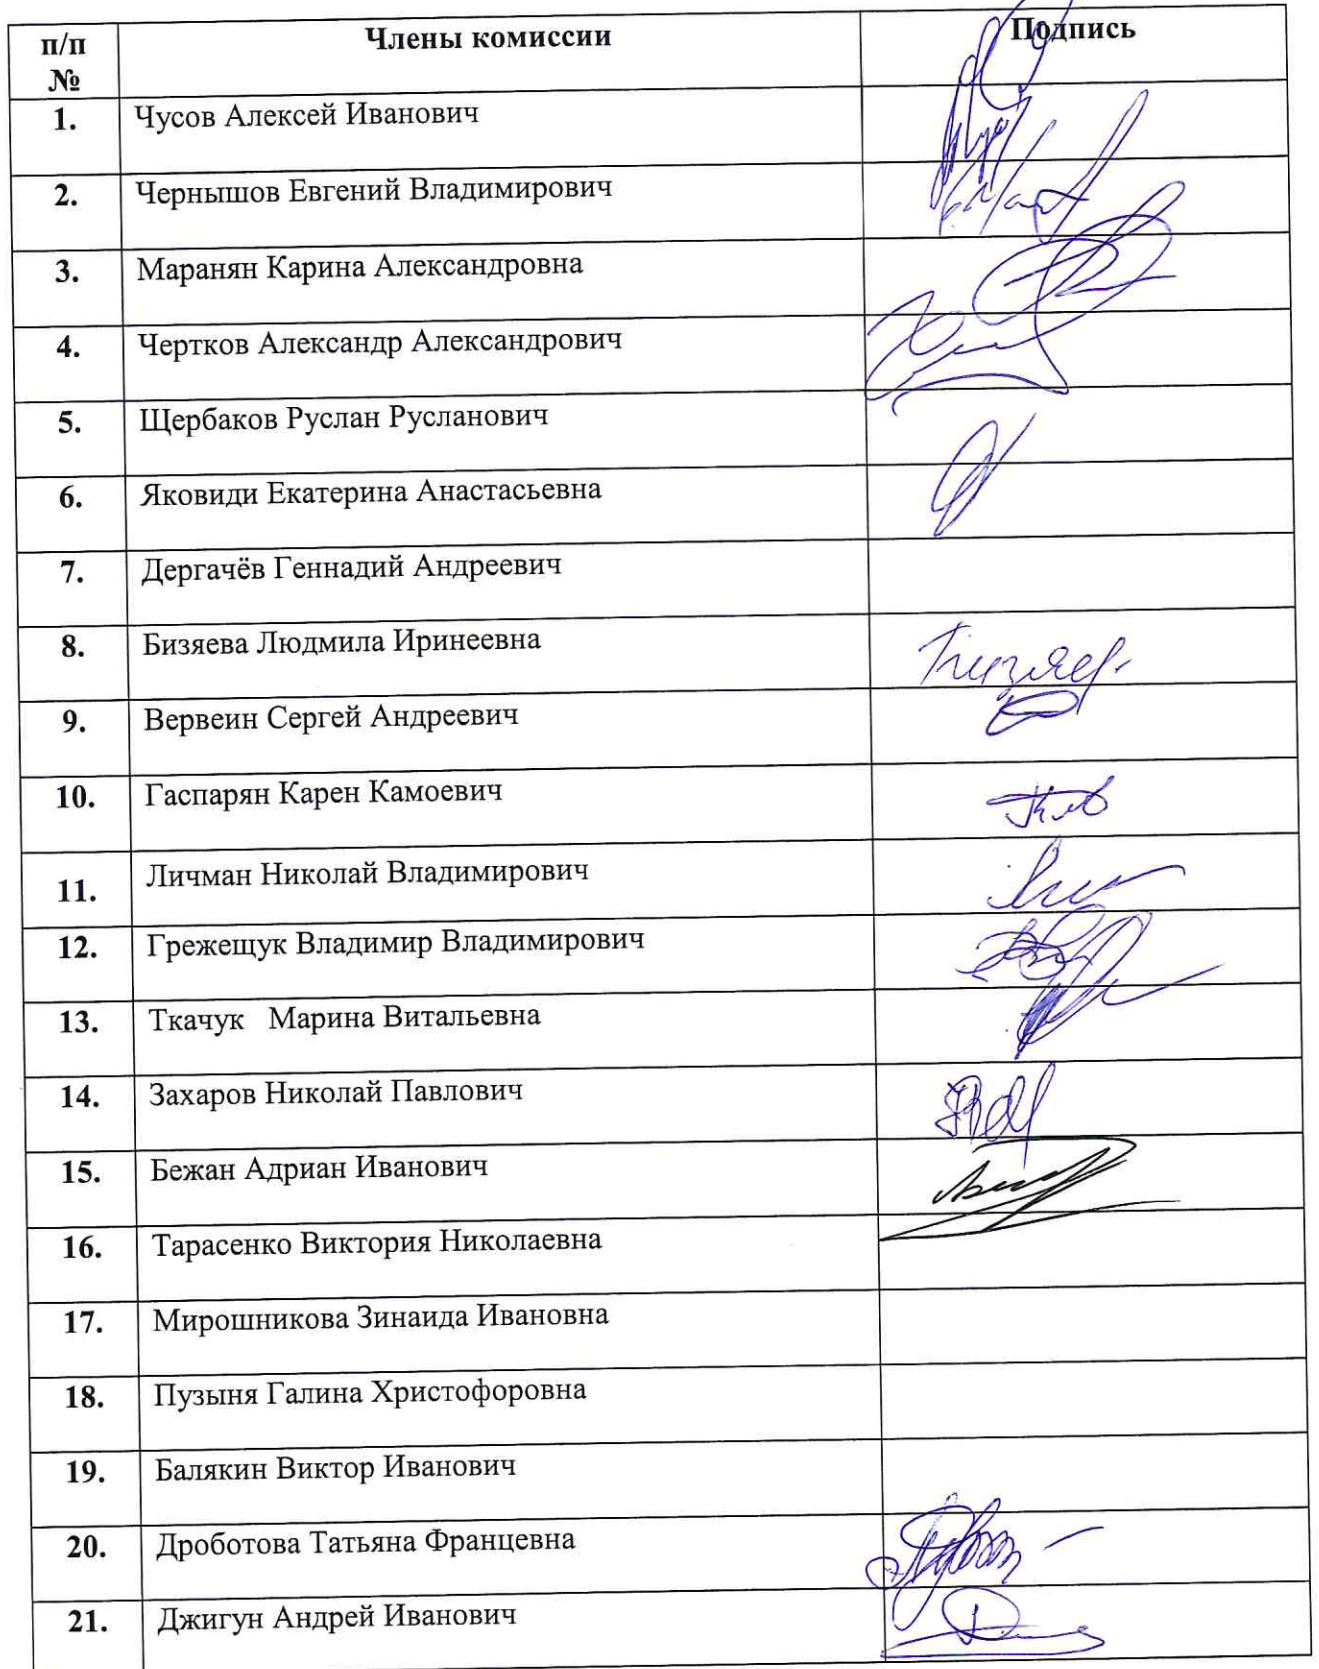 п/п № Члены комиссии Подпись
1. Чусов Алексей Иванович
2. Чернышов Евгений Владимирович
3. Маранян Карина Александровна
4. Чертков Александр Александрович
5. Щербаков Руслан Русланович
6. Яковиди Екатерина Анастасьевна
7. Дергачёв Геннадий Андреевич
8. Бизяева Людмила Иринеевна
9. Вервеин Сергей Андреевич
10. Гаспарян Карен Камоевич
11. Личман Николай Владимирович
12. Грежещук Владимир Владимирович
13. Ткачук Марина Витальевна
14. Захаров Николай Павлович
15. Бежан Адриан Иванович
16. Тарасенко Виктория Николаевна
17. Мирошникова Зинаида Ивановна
18. Пузыня Галина Христофоровна
19. Балякин Виктор Иванович
20. Дроботова Татьяна Францевна
21. Джигун Андрей Иванович